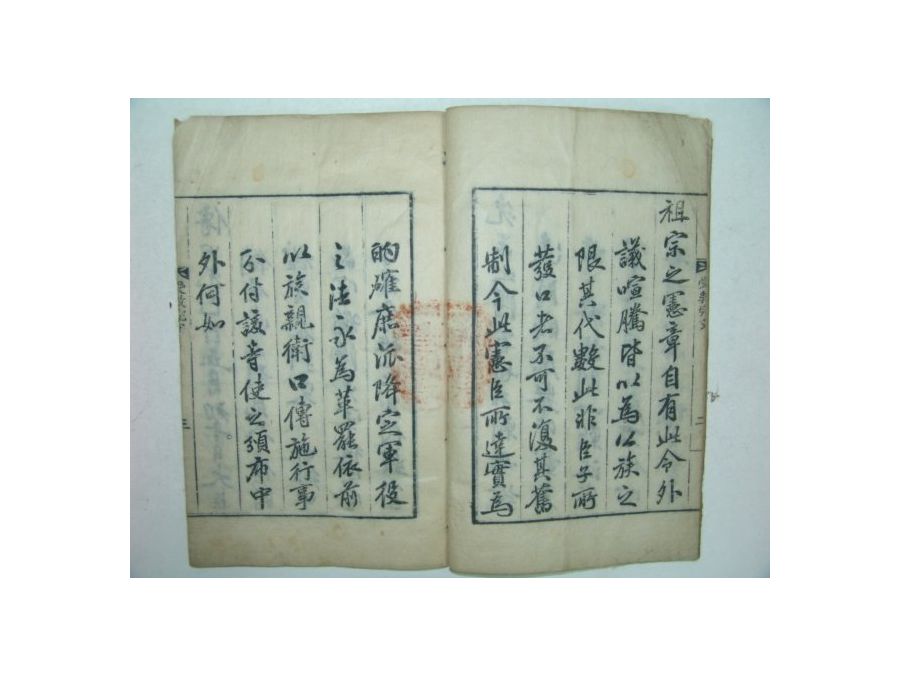 祖宗之憲章自有此令外
議喧騰皆以為以族之
限其代數此非臣子所
發口者不可不復其舊
制今此憲臣所達實為
的確庶派降定軍役
之法永為革罷依前
以族親衛口傳施行事
分付該寺使之頒布中
外何如
二
三